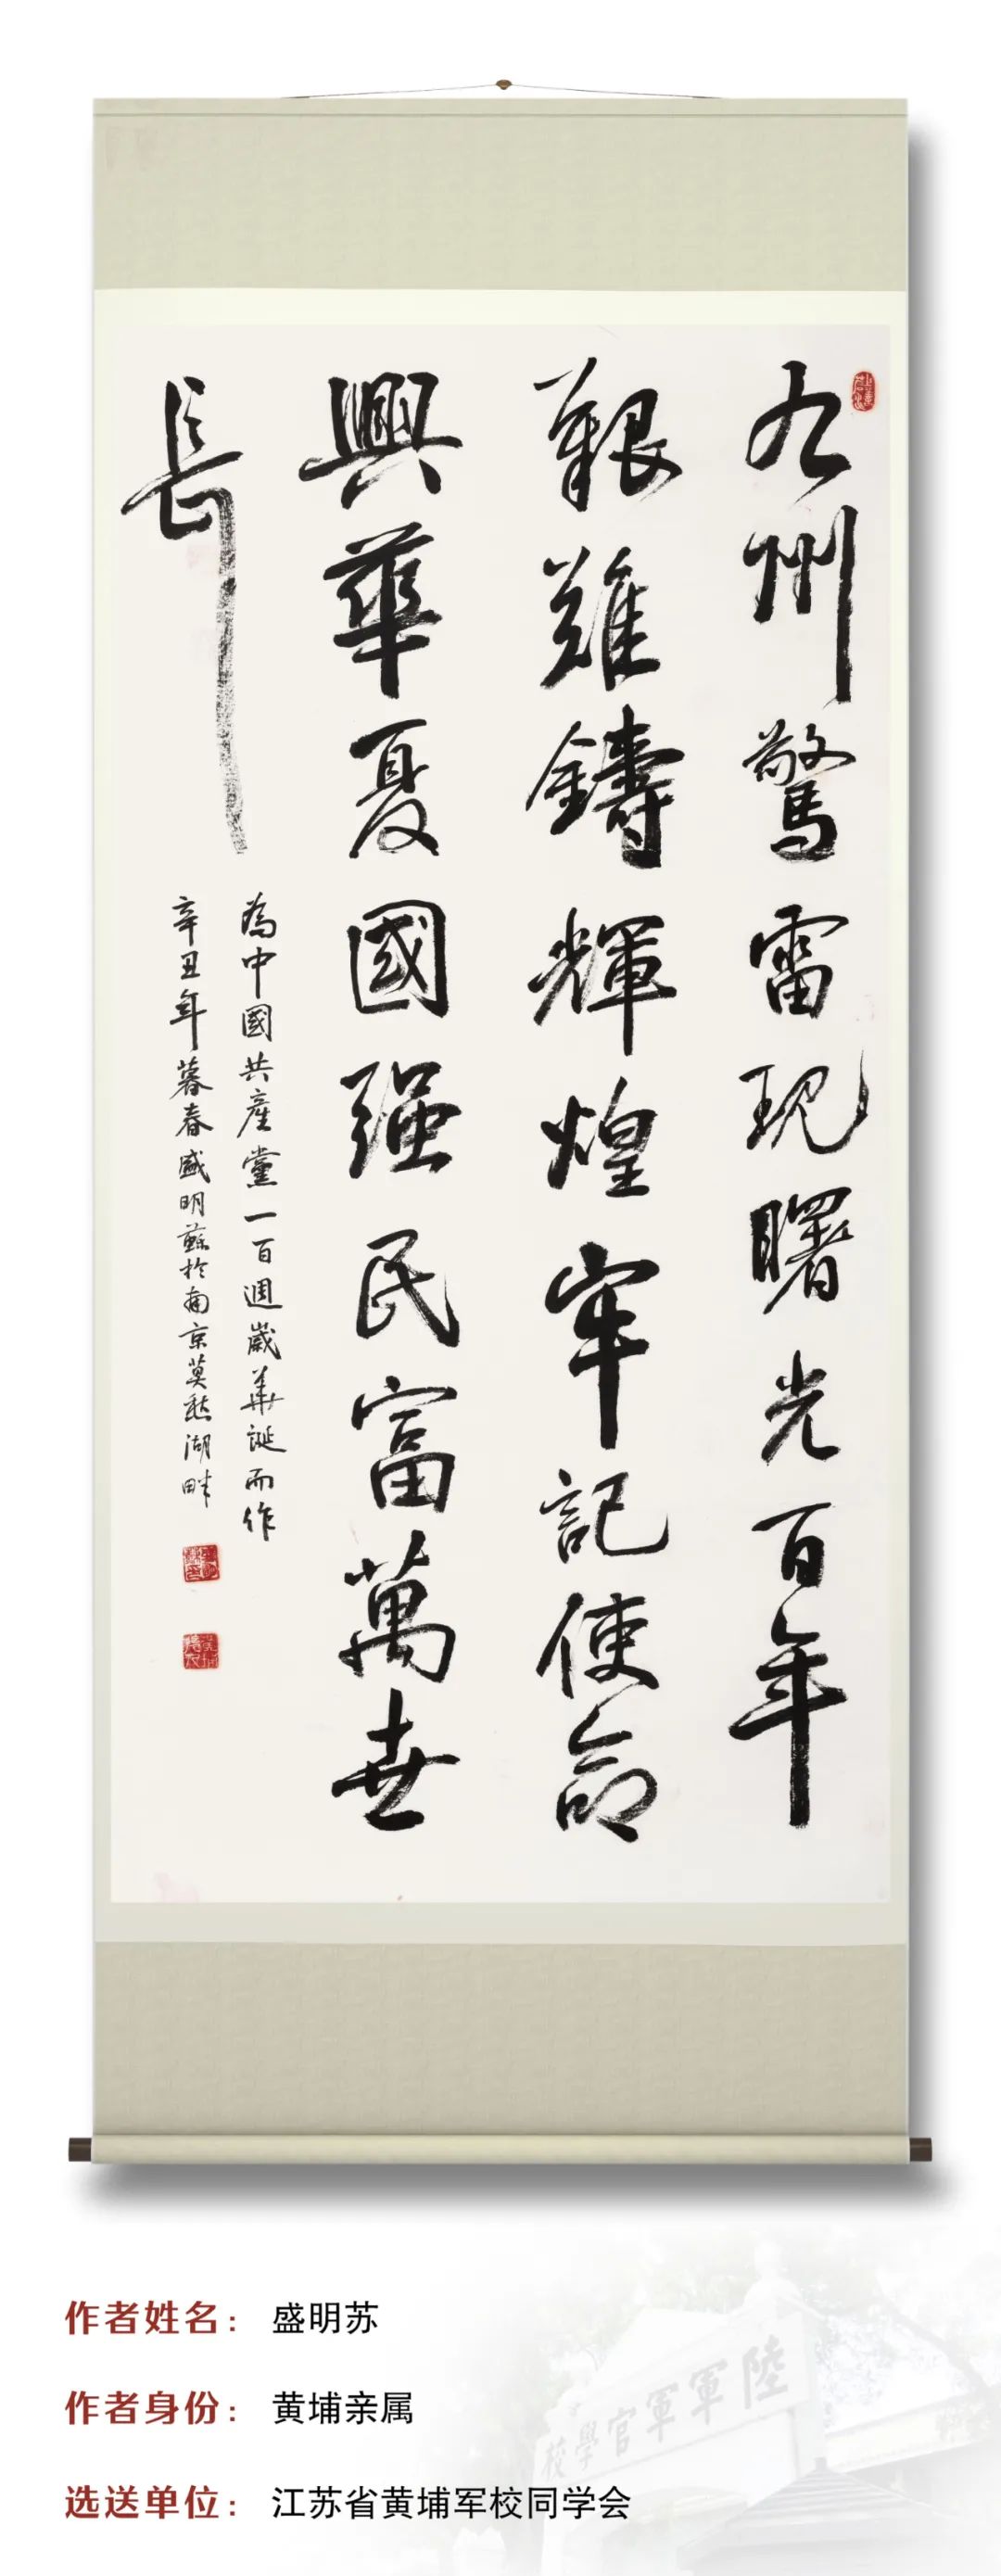 九州驚雷現曙光百年
艱難鑄輝煌牢記使命
興華夏國强民富萬世
長
為中國共產黨一百週歲華誕而作
辛丑年暮春盛明蘇於南京莫愁湖畔
作者姓名：盛明苏
作者身份：黄埔亲属
选送单位：江苏省黄埔军校同学会
陸軍軍官學校